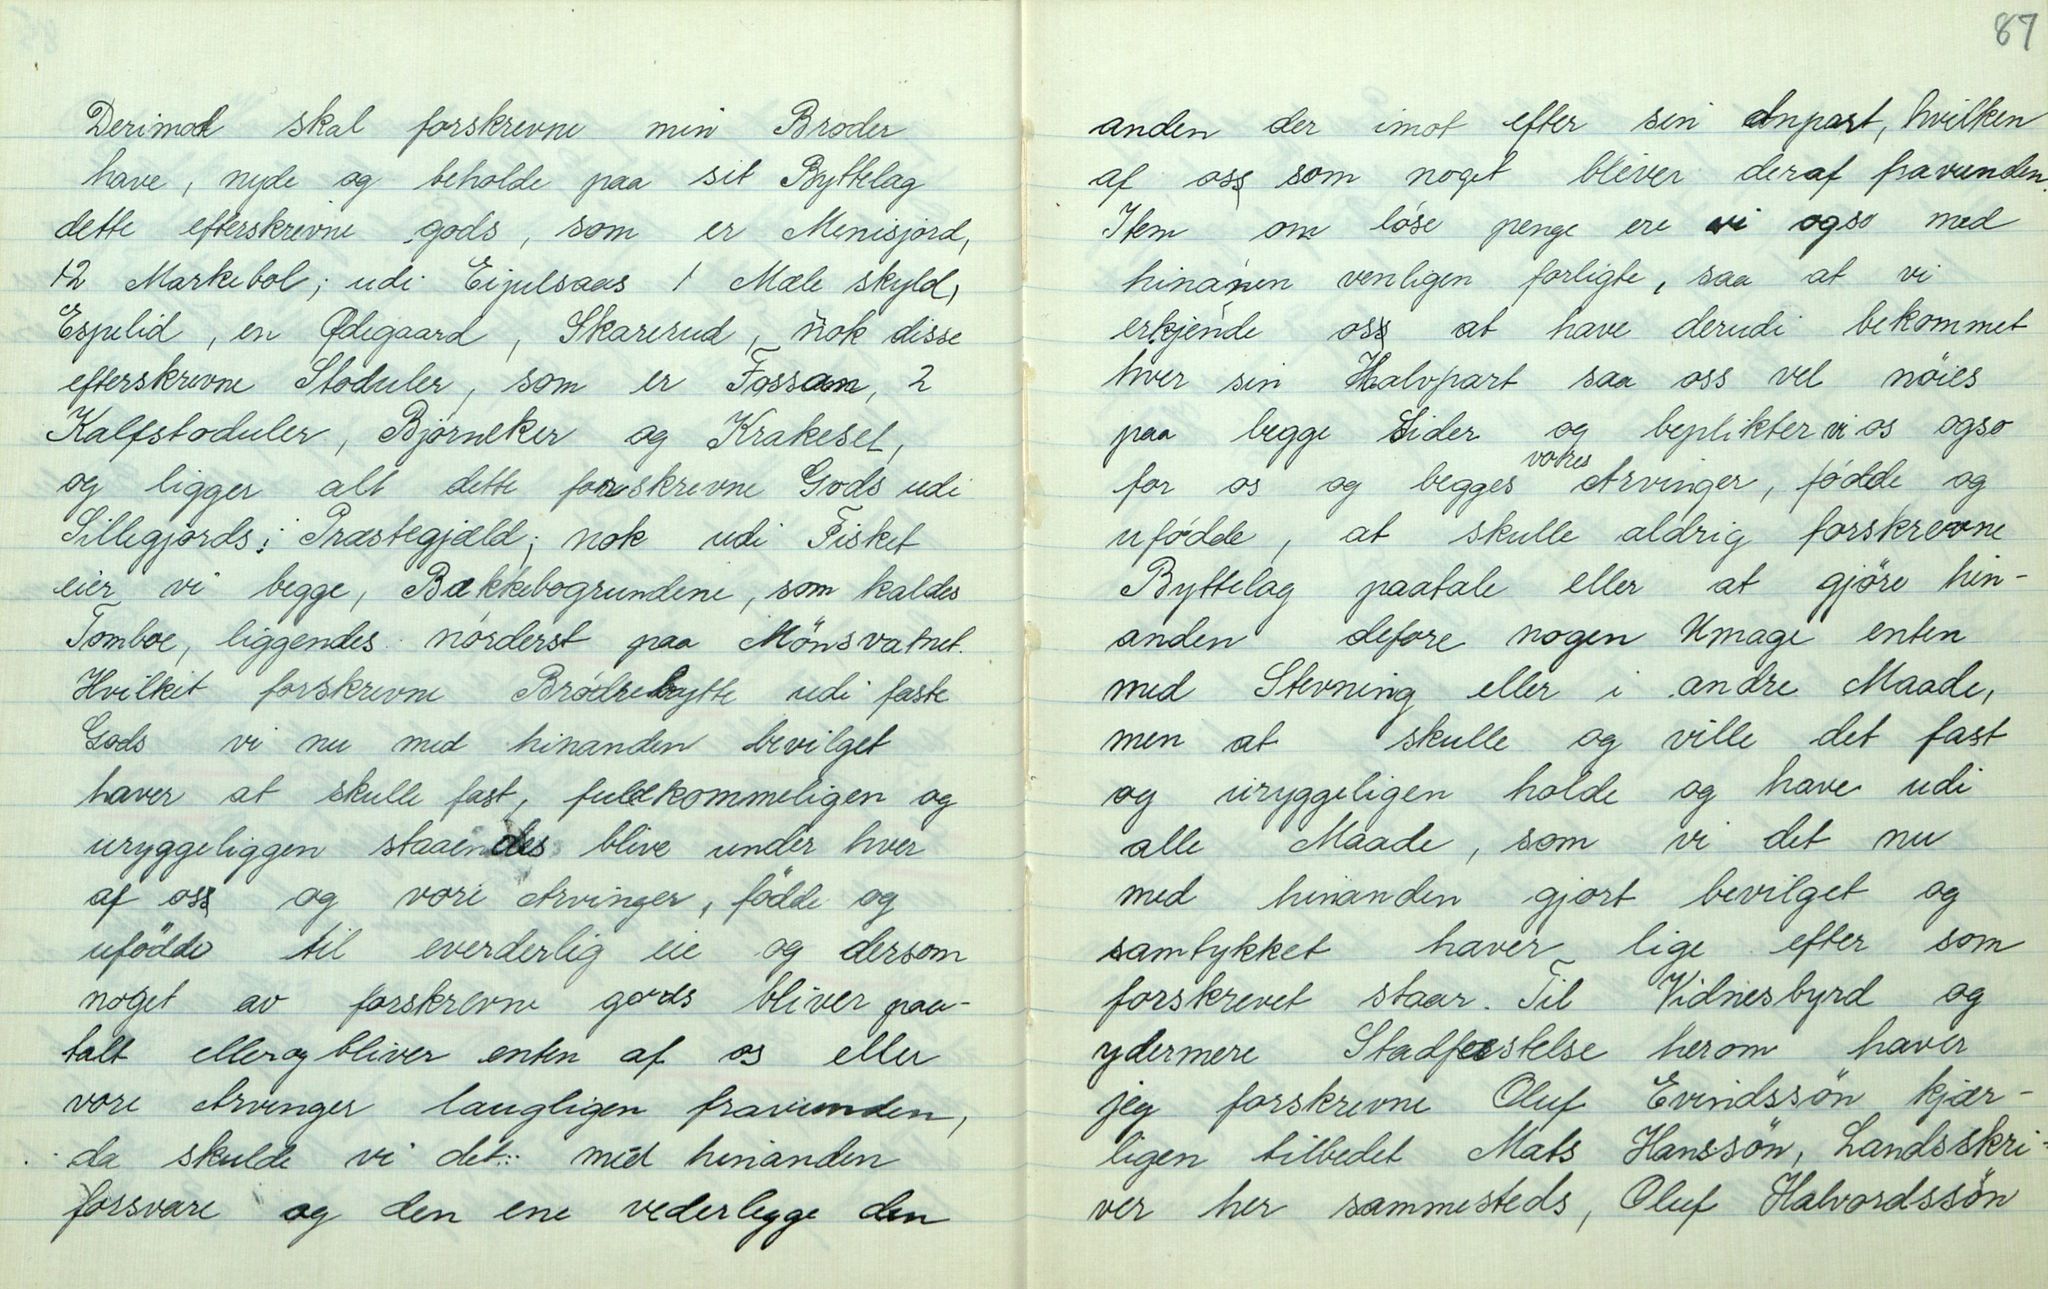 Derimod skal forskrevne min Broder
have, nyde og beholde paa sit Byttelag
dette efterskrevne gods, som er Menisjord,
12 Markebol; udi Eijulsaas 1 Mæle skyld,
Espelid, en Ødegaard, Skarerud, nok disse
efterskrevne Stoduler, som er Fossan, 2
Kalfstoduler, Bjørneker og Krakeset,
og ligger alt dette forskrevne Gods udi
Sillegjords Præstegjæld; nok udi Fisket
eier vi begge, Bækkebogrundene, som kaldes
Tomboe, liggendes nórderst paa Mönsvatnet.
Hvilket forskrevne Brödrebytte udi faste
Gods vi nu med hinanden bevilget
haver at skulle fast, fuldkommeligen og
uryggeliggen staaendes blive under hver
af oss og vore Arvinger, födde og
ufödde til everderlig eie og dersom
noget av forskrevne gods bliver paa-
talt eller og bliver enten af os eller
vore Arvinger laugligen fravunden,
da skulde vi det med hinanden
forsvare og den ene vederlegge den
87
anden der imot efter sin Anpart, hvilken
af oss som noget bliver deraf fravunden.
Item om löse penge ere vi ogso med
hinanen venligen forligte, saa at vi
erkjende oss at have derudi bekommet
hver sin Halvpart saa oss vel nöies
paa begge Sider og beplikter vi os ogso
for os og begges vores Arvinger, födde og
ufödde, at skulle aldrig forskrevne
Byttelag paatale eller at gjöre hin-
anden defore nogen Umage enten
med Stevning eller i andre Maade,
men at skulle og ville det fast
og uryggeligen holde og have udi
alle Maade, som vi det nu
med hinanden gjort bevilget og
samtykket haver lige efter som
forskrevet staar. Til Vidnesbyrd og
ydermere Stadfæstelse herom haver
jeg forskrevne Oluf Evindssön kjær-
ligen tilbedet Mats Hanssön, Landsskri-
ver her sammesteds, Oluf Halvordssön